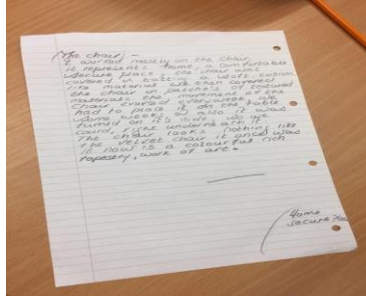 (The chair) -
I worked mostly on the chair
it represents home, a comfortable
secure place. the chair was
covered in batting a soft, cotton
like material we then covered
the chair in patch's of textured
materials the movement of the
chair evolved everyweek we
had to place it on the table
some weeks or also it was
turned on it's side so we
could, richt underneath it
The chair looks nothing like
the velvet chair it onced was
it now is a colourful rich
tapestry, work of art.
Home
secure